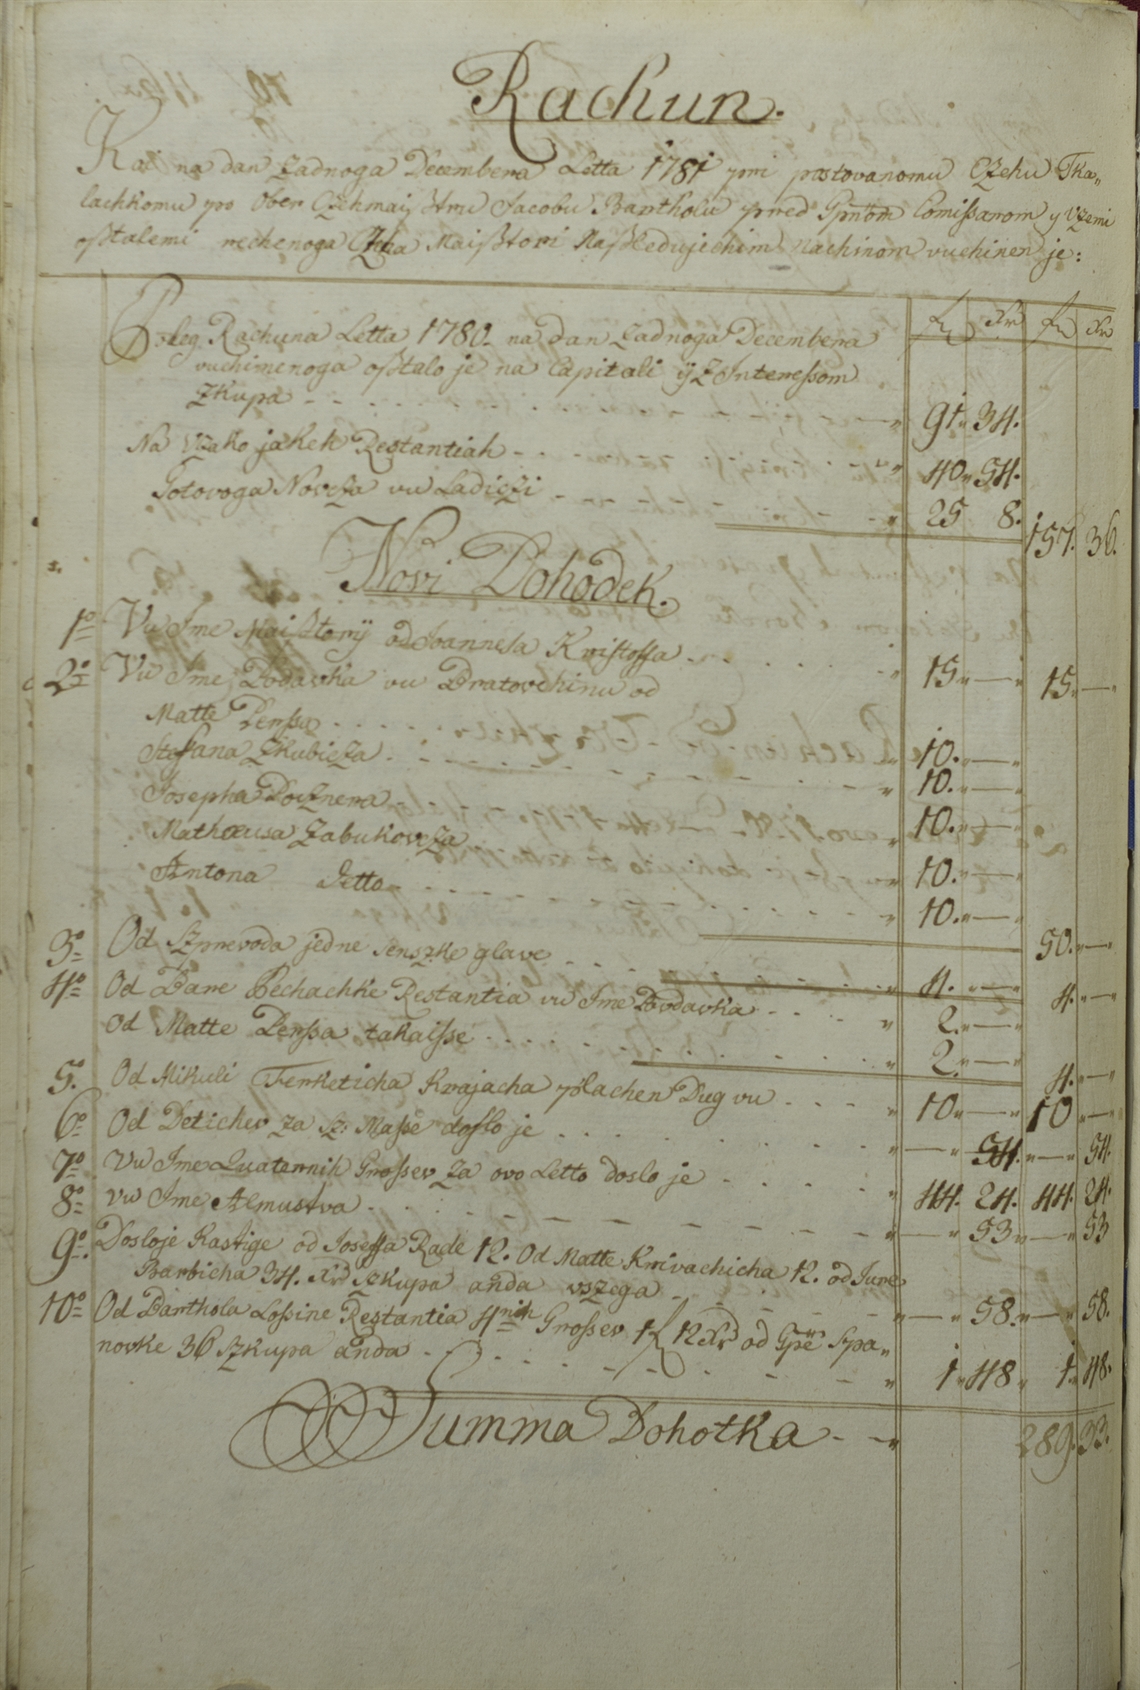 Rachun.
Kai na dan Zadnoga Decembera Letta 1781 pri postovanomu Czehu Tka„
lachkomu po Ober Czehmaisztru Jacobu Bartholu pred Gpnom Comissarom y Vzemi
osztalemi rechenoga Czeha Maisztori Naszledujechim Nachinom vuchinen je:
fl Xr fl Xr
Poleg Rachuna Letta 1780 na dan Zadnoga Decembera
vuchinenoga osztalo je na Capitali ÿ Z Interessom
Zkupa - - - - - „ 91. 34.
Na Vzako jakeh Restantiah - - „ 40 „ 54.
Gotovoga Novcza vu Ladiczi - - „ 25 8. 157. 36.
Novi Dohodek.
1º Vu Ime Maisztorÿ od Joannesa Kristoffa - - - „ 15 „ — „ 15 „ — „
2º Vu Ime Dodavka vu Bratovchinu od
Matte Penssa - - - - „ 10. „ — „
Steffana Zkubicza - - - - „ 10. „ — „
Josepha Poznera - - - - „ 10. „ — „
Mathæusa Zabukovcza - - - „ 10. „ — „
Antona detto - - - - „ 10. „ — „ 50. „ —
3º Od Szprevoda jedne senszke glave - - - „ 4. „ — „ 4. „ —
4º Od Bare Pechachke Restantia vu Ime Dodavka - - - „ 2. „ — „
Od Matte Penssa takaisse - - - - „ 2. „ — „ 4. „ —
5º. Od Mikuli Ferketicha Krajacha plachen Dug vu - - - „ 10 „ — „ 10 „ —
6º Od Detichev za Sz: Masse doslo je - - - - „ — „ 54. „ — „ 54.
7º Vu Ime Quaternih Grossev za ovo Letto doslo je - - - „ 44. 24. 44. 24.
8º Vu Ime Almustva - - - - „ — „ 53 „ — „ 53
9º. Dosloje Kastige od Joseffa Rade 12. Od Matte Krivachicha 12. od Jure
Barbicha 34. Xr Szkupa anda vszega - - - „ — „ 58. „ — „ 58.
10º Od Barthola Lossine Restantia 4nih Grossev 1 fl 12 Xr od Gpe Spa„
novke 36 Szkupa anda - - - - „ 1 „ 48 „ 1 „ 48.
Summa Dohotka - - „ 289. 33.